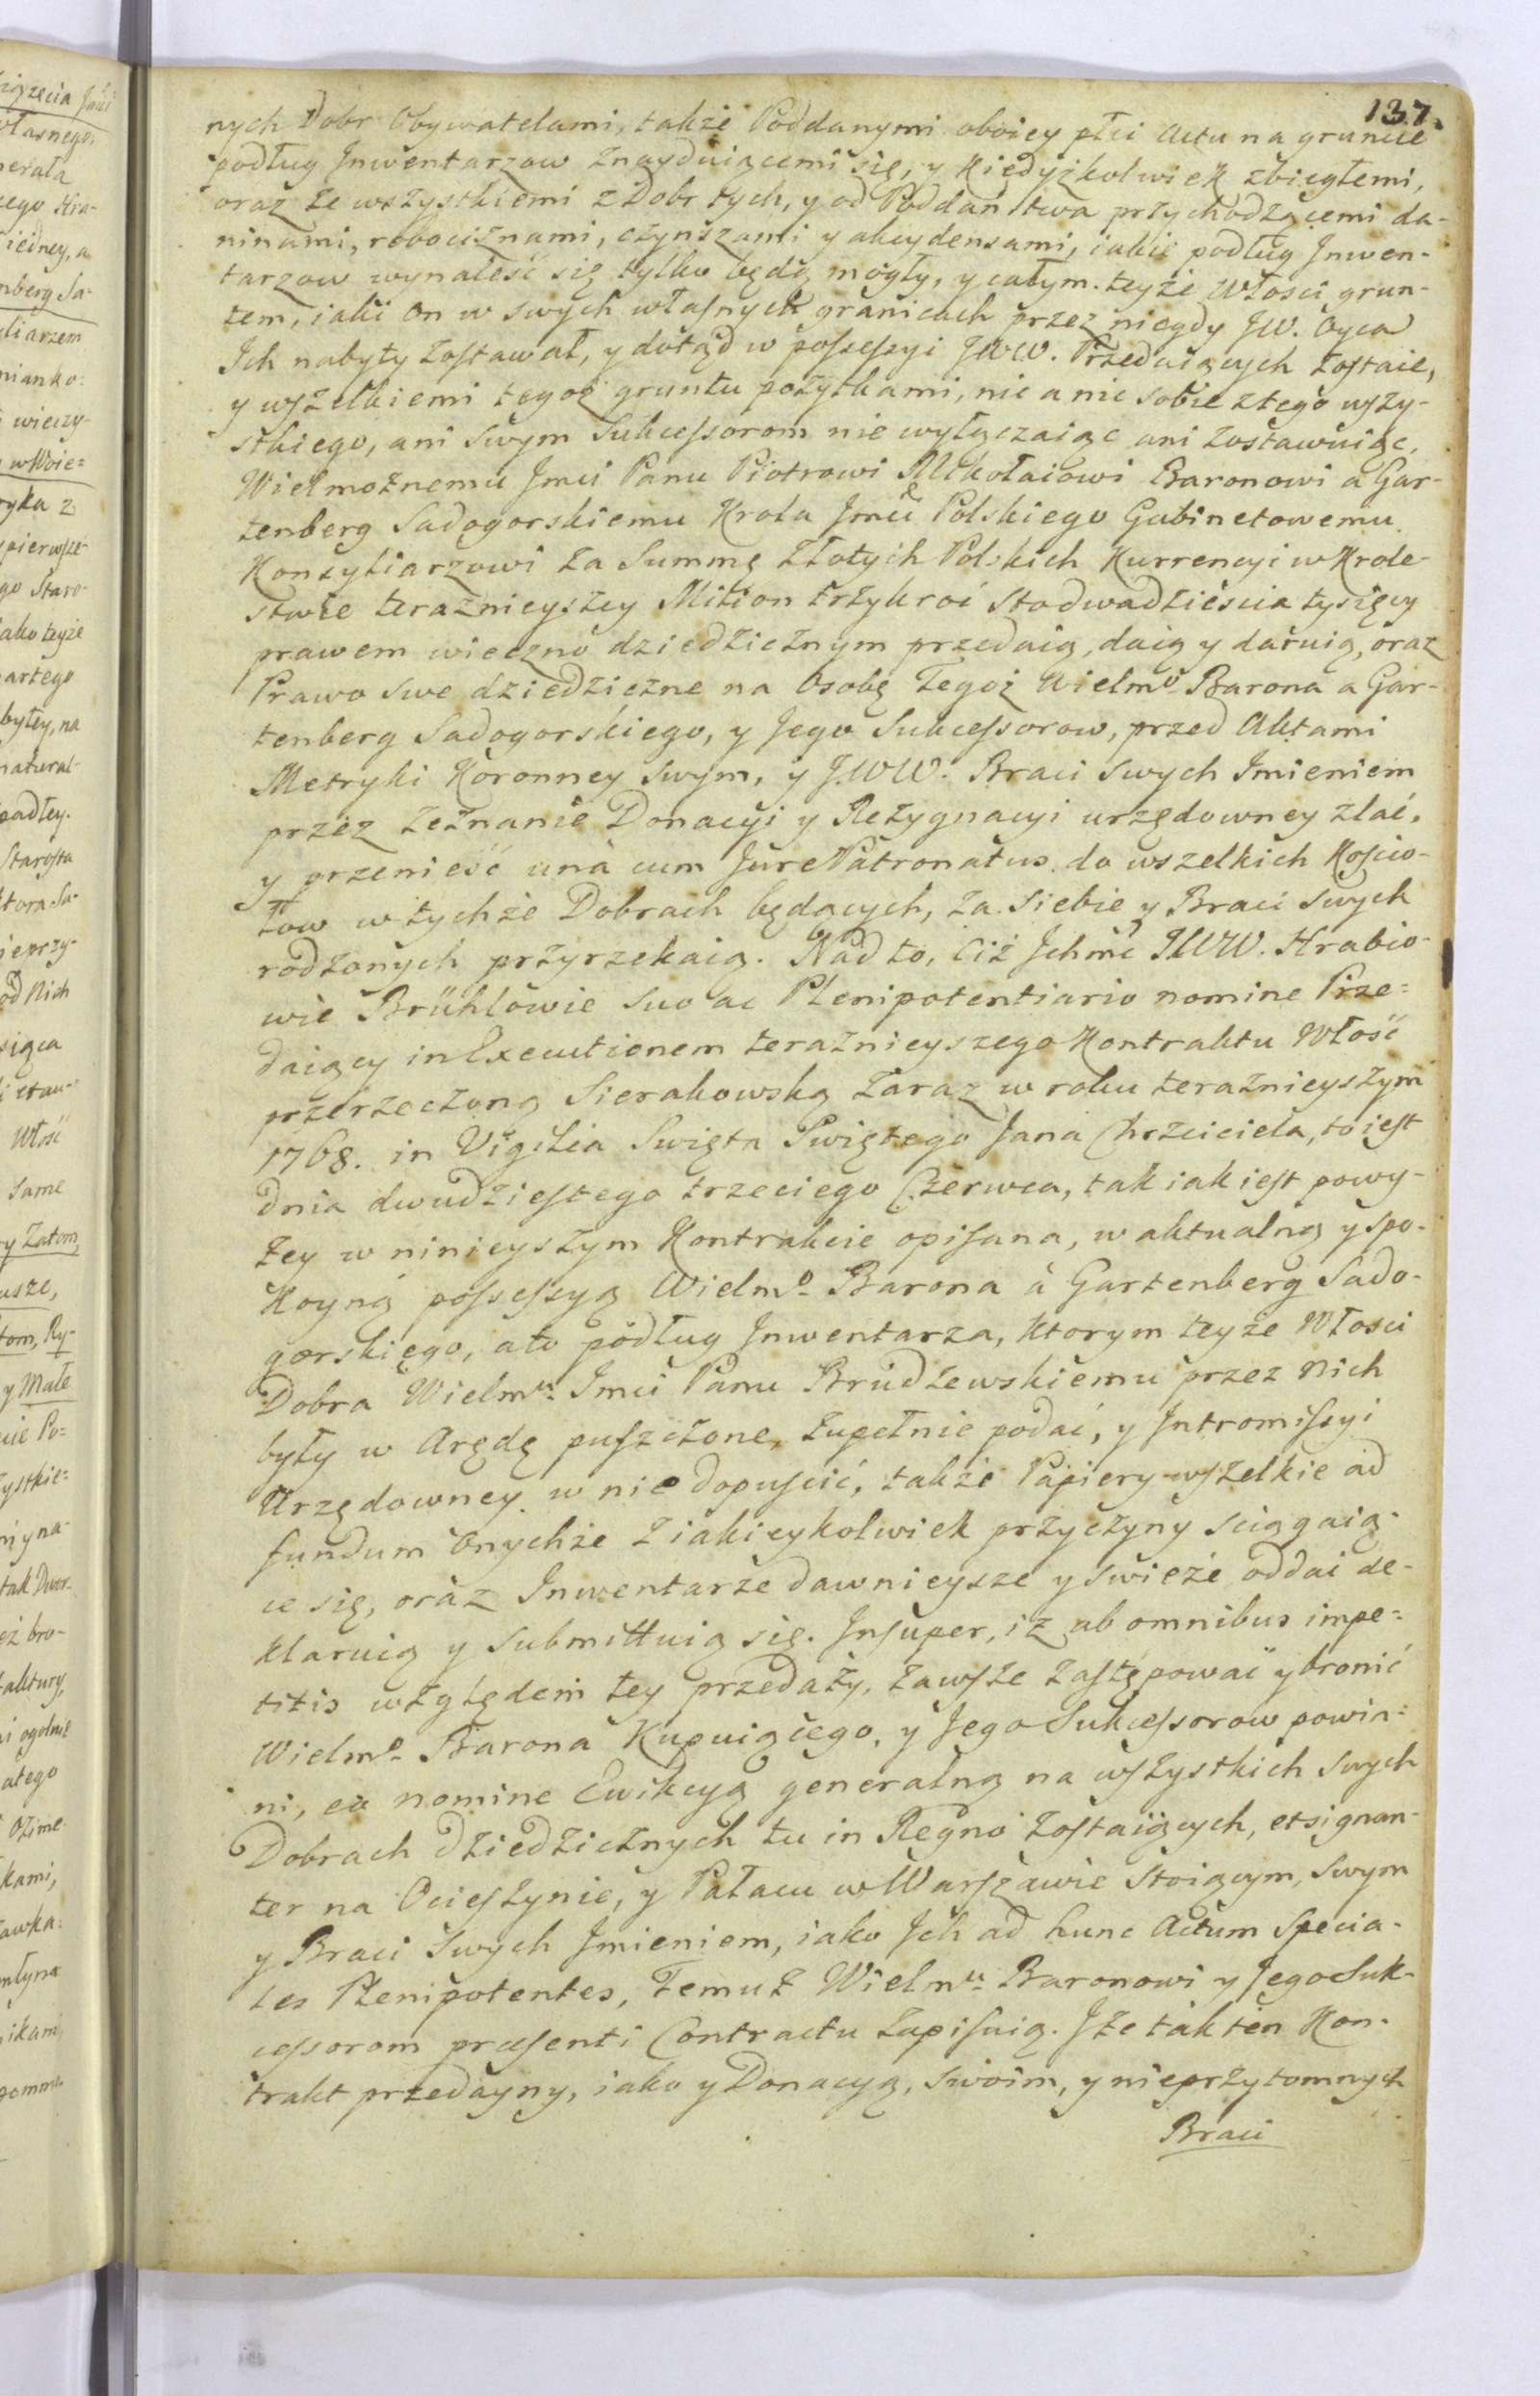 137.
nych Dobr Obywatelami, także Poddanymi oboiey płci Actu na gruncie
podług Jnwentarzow Znayduiącemi się, y kiedyżkolwiek zbiegłemi,
oraz ze wszystkiemi z Dobr tych, y od Poddaństwa przychodzącemi da-
ninami, robociznami, czynszami y akcydensami, iakie podług Jnwen-
tarzow wynaleść się tylko będą mogły, y całym teyże Włości grun-
tem, iaki On w swych własnych granicach przez niegdy JW. Oyca
Ich nabyty zostawał, y dotąd w possessyi JWW. Przedaiących zostaie,
y wszelkiemi tegoż gruntu pożytkami, nic a nic sobie z tego wszy-
stkiego, ani Swym Sukcessorom nie wyłączaiąc ani zostawuiąc,
Wielmożnemu Jmci Panu Piotrowi Mikołaiowi Baronowi a Gar-
tenberg Sadogorskiemu Krola Jmci Polskiego Gabinetowemu
Konsyliarzowi za Summę Złotych Polskich Kurrencyi w Krole-
stwie teraznieyszey Milion trzykroć Stodwadzieścia tysięcy
prawem wieczno dziedzicznym przedaią, daią y daruią, oraz
Prawo swe dziedziczne na Osobę Tegoż Wielmo Barona a Gar-
tenberg Sadogorskiego, y Jego Sukcessorow, przed Aktami
Metryki Koronney Swym, y JWW. Braci Swych Jmieniem
przez Zeznanie Donacyi y Rezygnacyi urzędowney zlać,
y przenieść unà cum Jure Patronatus do wszelkich Kościo-
łow w tychże Dobrach będących, za siebie y Braci Swych
rodzonych przyrzekaią. Nad to, Ciż Jchmć JWW. Hrabio-
wie Brühlowie suo ac Plenipotentiario nomine Prze-
daiący in Executionem teraznieyszego Kontraktu Włość
przerzeczoną Sierakowską Zaraz w roku teraznieyszym
1768. in Vigilia Swięta Swiętego Jana Chrzciciela, to iest
dnia dwudziestego trzeciego Czerwca, tak iak iest powy-
żey w ninieyszym Kontrakcie opisana, w aktualną y spo-
koyną possessyą Wielmo Barona à Gartenberg Sado-
gorskiego, a to podług Jnwentarza, ktorym teyże Włości
Dobra Wielmu Jmci Panu Brudzewskiemu przez nich
były w Arędę puszczone, zupełnie podać, y Jntromissyi
Urzędowney w nie dopuścić, także Papiery wszelkie ad
fundum Onychże z iakieykolwiek przyczyny sciągaią-
ce się, oraz Inwentarze dawnieysze y swieże oddać de-
klaruią y Submittuią się. Jnsuper, iż ab omnibus impe-
titis względem tey przedaży, zawsze zastępować y bronić
Wielmo Barona Kupuiącego, y Jego Sukcessorow powin-
ni, eo nomine Ewikcyą generalną na wszystkich Swych
Dobrach Dziedzicznych tu in Regno zostaiących, et signan-
ter na Ocieszynie, y Pałacu w Warszawie Stoiącym, Swym
y Braci Swych Jmieniem, iako Jch ad hunc Actum Specia-
les Plenipotentes, Temuż Wielmu Baronowi y Jego Suk-
cessorom præsenti Contractu zapisuią. Jże tak ten Kon-
trakt przedayny, iako y Donacyą, swoim, y nieprzytomnych
Braci